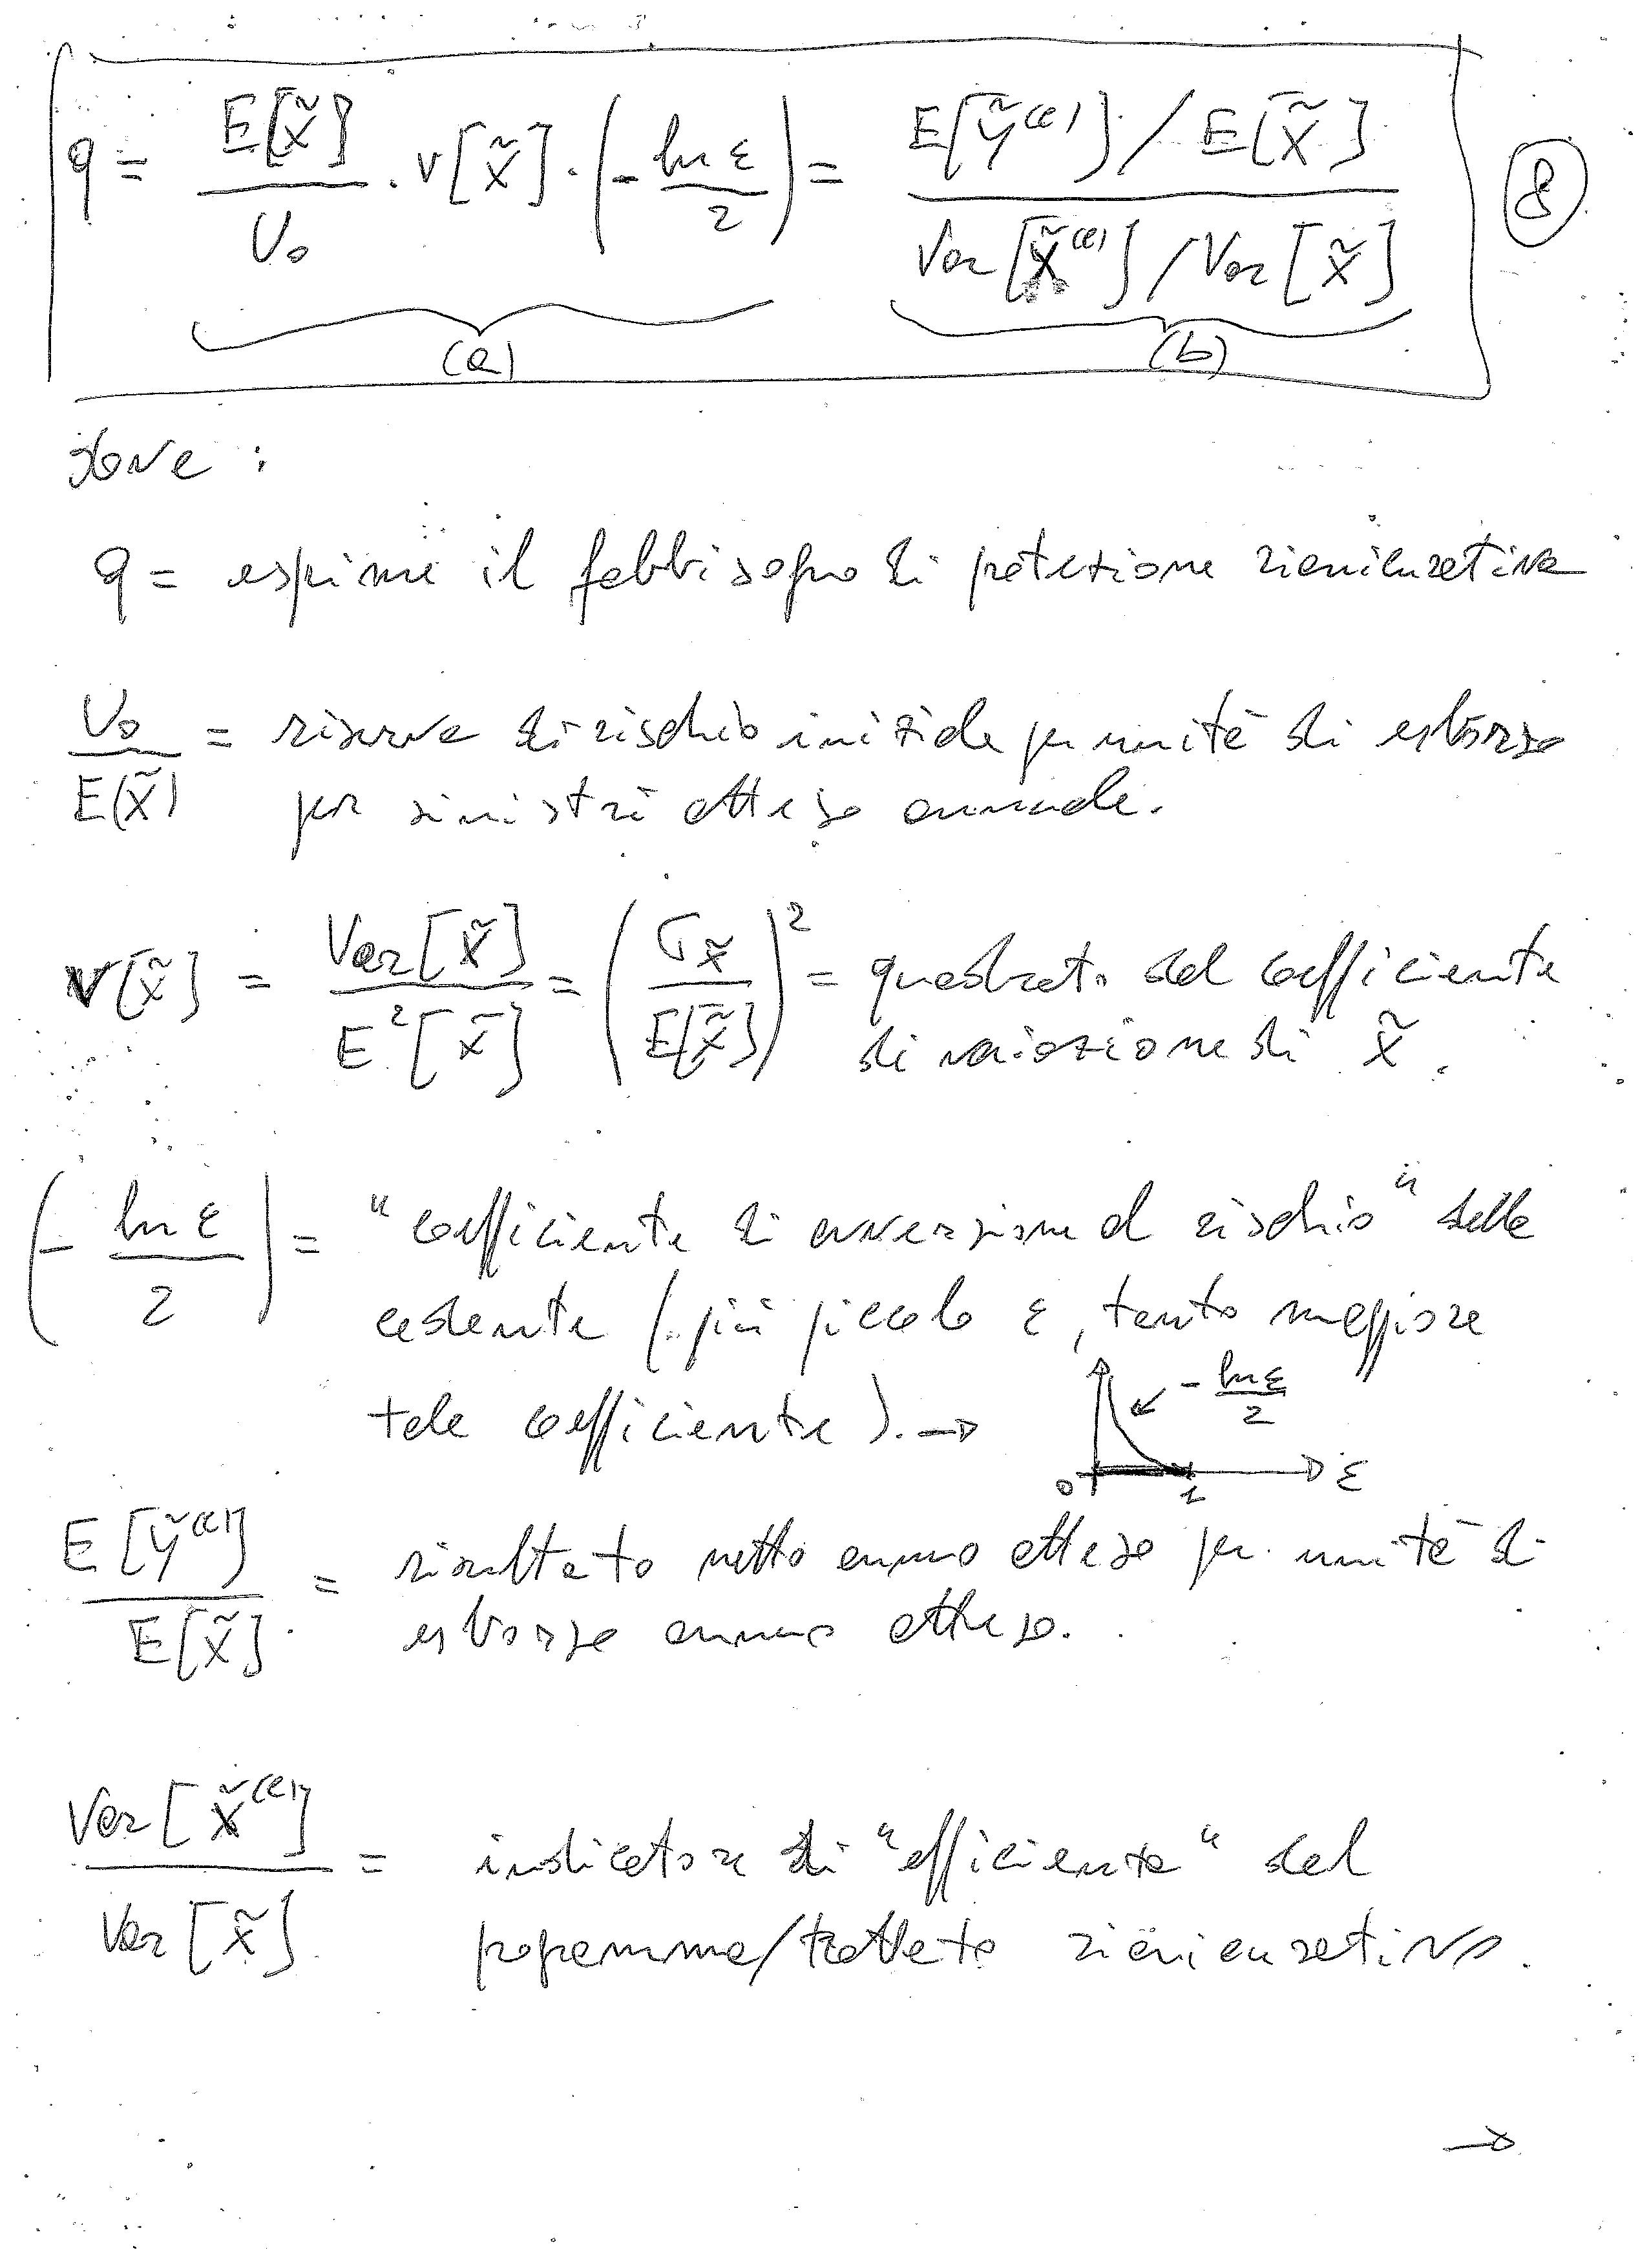 q = E[X̃]/U₀ · v[X̃] · (- ln ε/2) = (E[Ỹ^(c)] / E[X̃]) / (Var[X̃^(c)] / Var[X̃]) 8
(a) (b)
dove :
q = esprime il fabbisogno di protezione riassicurativa
U₀/E(X̃) = riserva di rischio iniziale per unità di esborso
per sinistri atteso annuale.
v[X̃] = Var[X̃]/E²[X̃] = (σ_X̃/E[X̃])² = quadrato del coefficiente
di variazione di X̃.
(- ln ε/2) = "coefficiente di avversione al rischio" della
cedente (più piccolo ε, tanto maggiore
tale coefficiente). →
- ln ε/2
0 1 ε
E[Ỹ^(c)]/E[X̃] = risultato netto annuo atteso per unità di
esborso annuo atteso.
Var[X̃^(c)]/Var[X̃] = indicatore di "efficienza" del
programma/trattato riassicurativo.
→